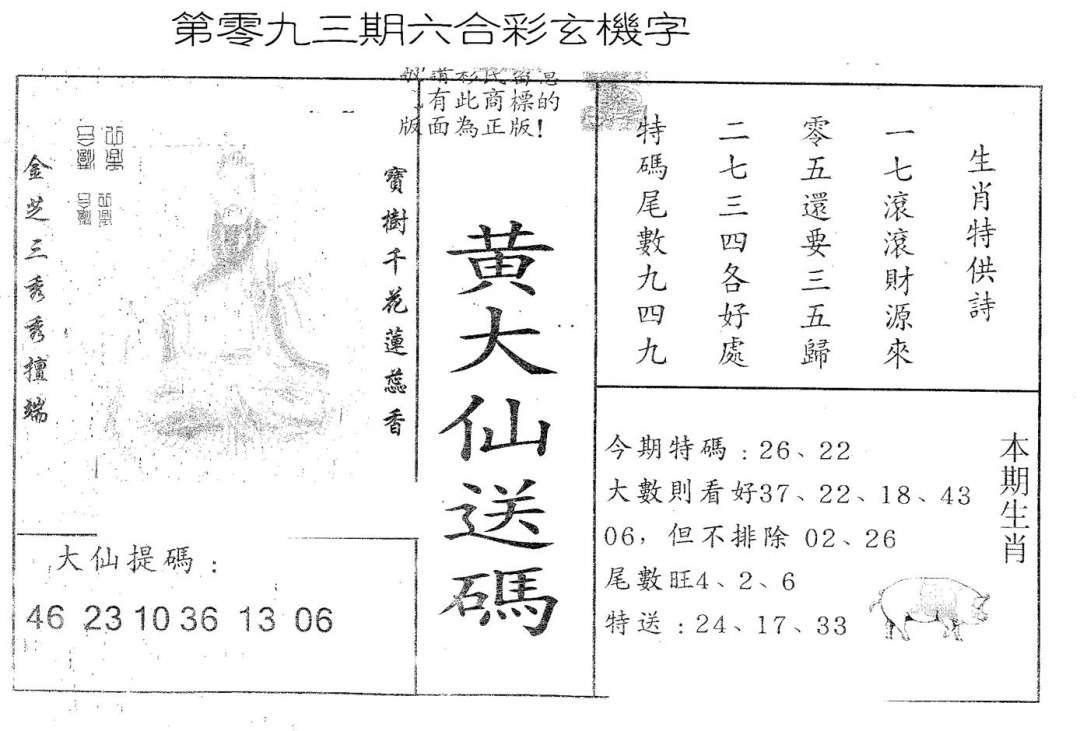 第零九三期六合彩玄機字
有此商標的
版面為正版!
金芝三秀秀擅端
寶樹千花蓮蕊香
黄大仙送碼
生肖特供詩
一七滾滾財源來
零五還要三五歸
二七三四各好處
特碼尾數九四九
大仙提碼:
46 23 10 36 13 06
本期生肖
今期特碼:26、22
大數則看好37、22、18、43
06,但不排除 02、26
尾數旺4、2、6
特送:24、17、33